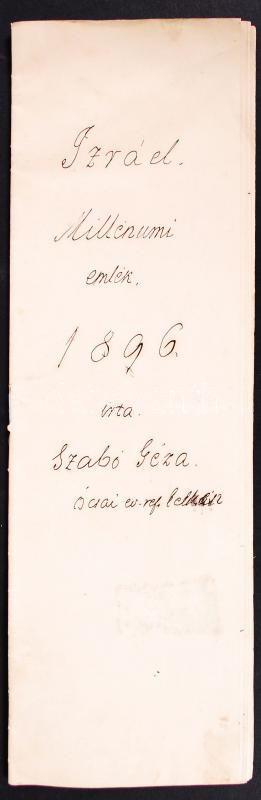 Izráel.
Millénumi
emlék.
1896.
irta.
Szabó Géza.
ócsai ev. ref. lelkész